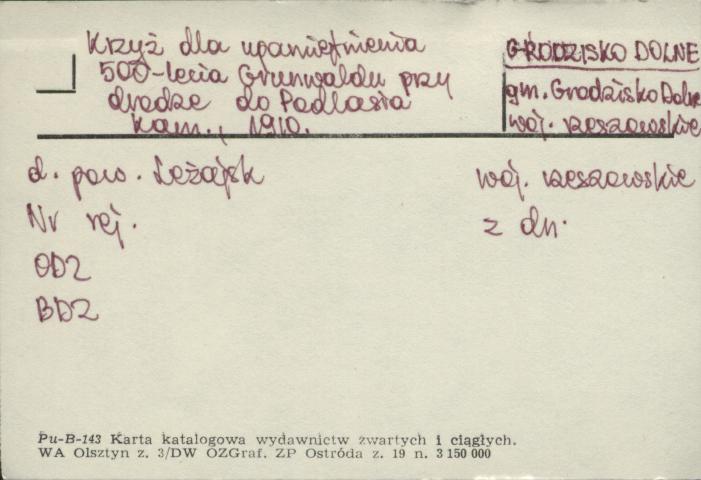 Krzyż dla upamiętnienia
500-lecia Grunwaldu przy
drodze do Podlasia
kam., 1910.
GRODZISKO DOLNE
gm. Grodzisko Dolne
woj. rzeszowskie
d. pow. Leżajsk
woj. rzeszowskie
Nr rej.
z dn.
ODZ
BDZ
Pu-B-143 Karta katalogowa wydawnictw zwartych i ciągłych.
WA Olsztyn z. 3/DW OZGraf. ZP Ostróda z. 19 n. 3 150 000